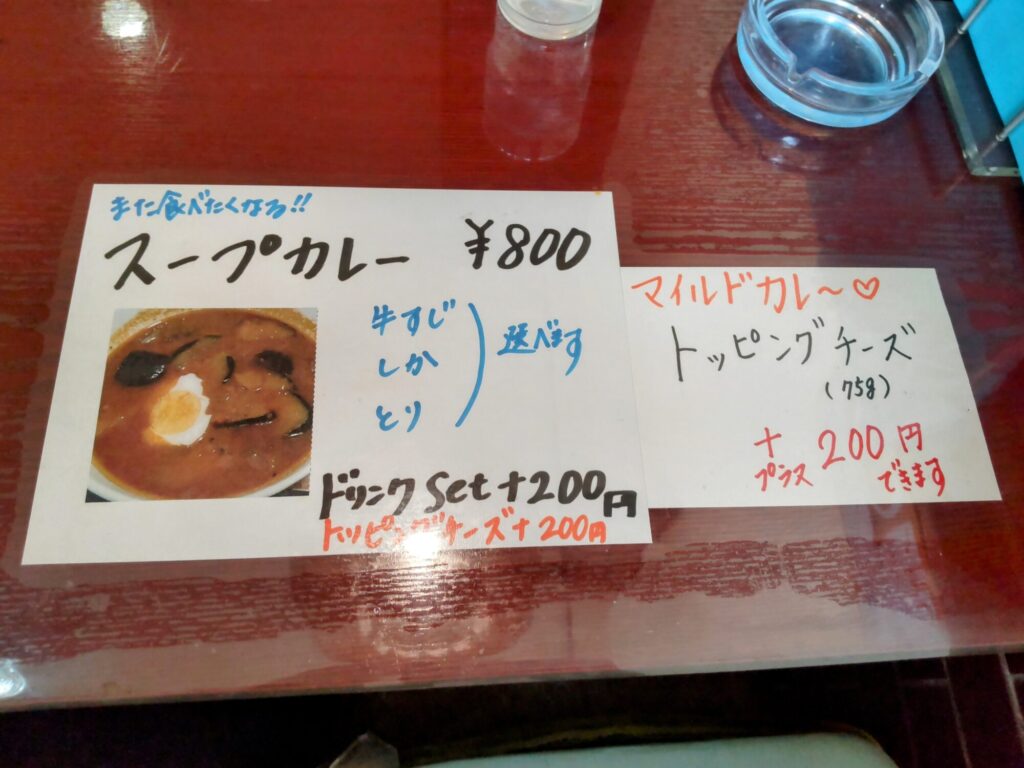 また食べたくなる!!
スープカレー ¥800
牛すじ
しか
とり
選べます
ドリンクSet+200円
トッピングチーズ+200円
マイルドカレ〜♡
トッピングチーズ
(75g)
+200円
プラス できます